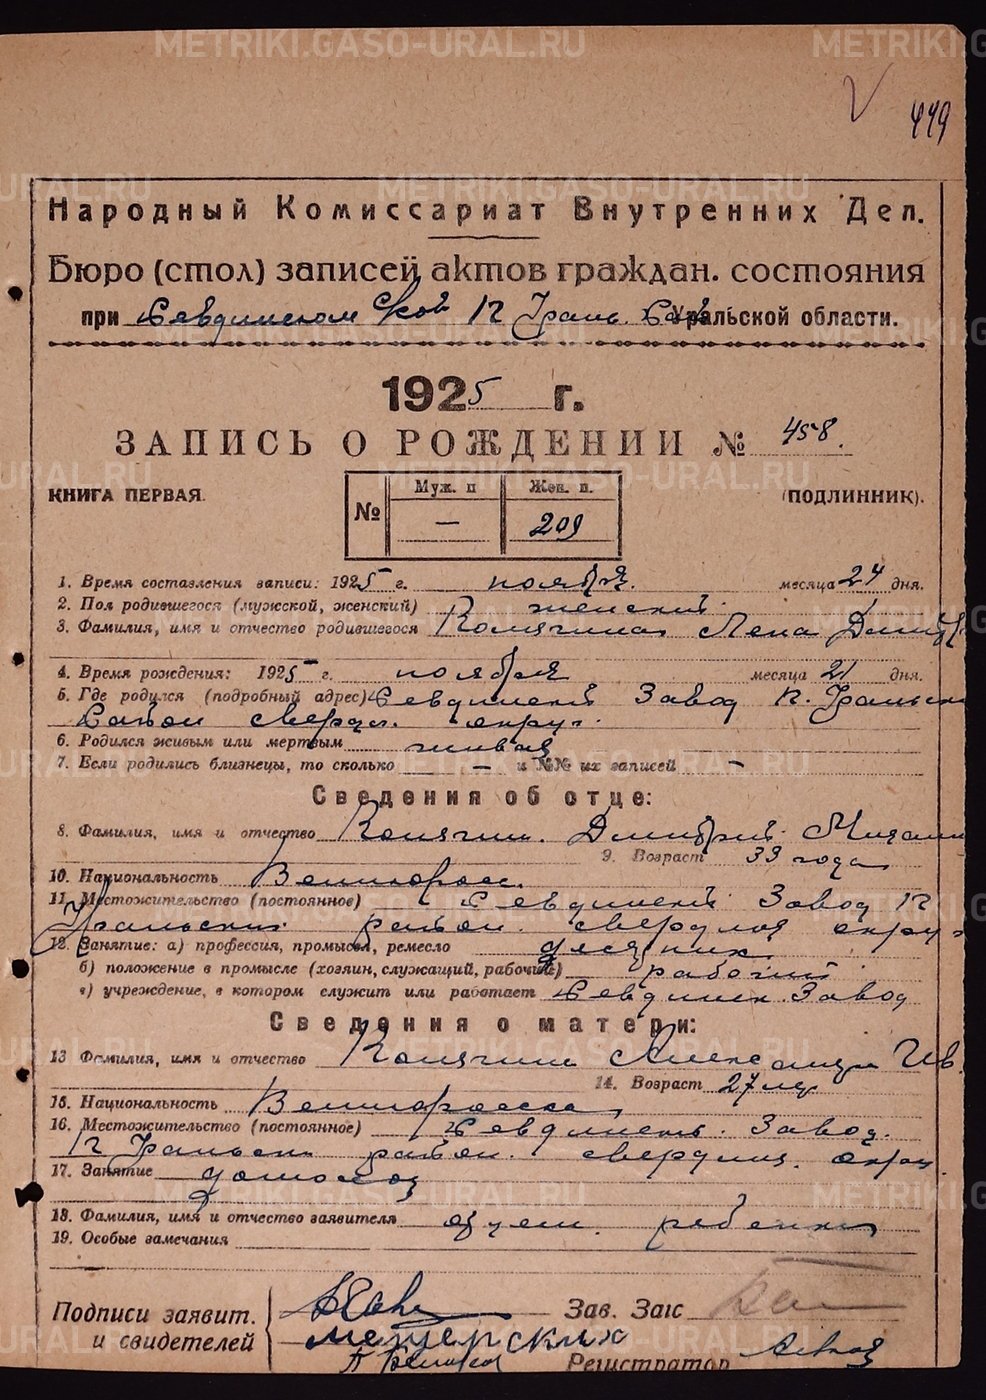 METRIKI.GASO-URAL.RU
449
Народный Комиссариат Внутренних Дел.
Бюро (стол) записей актов граждан. состояния
при Ревдинском Уральской области.
1925 г.
ЗАПИСЬ О РОЖДЕНИИ № 458.
КНИГА ПЕРВАЯ. (ПОДЛИННИК).
№ Муж. п. Жен. п.
— 209
1. Время составления записи: 1925 г. ноября. месяца 24 дня.
2. Пол родившегося (мужской, женский) женский.
3. Фамилия, имя и отчество родившегося Лена
4. Время рождения: 1925 г. ноября месяца 21 дня.
5. Где родился (подробный адрес) Ревдинский Завод
район сверд. округ.
6. Родился живым или мертвым живая
7. Если родились близнецы, то сколько — и №№ их записей —
Сведения об отце:
8. Фамилия, имя и отчество Дмитрий
9. Возраст 33 года
10. Национальность Великоросс.
11. Местожительство (постоянное) Ревдинский Завод
Уральский район свердлов округ
12. Занятие: а) профессия, промысел, ремесло
б) положение в промысле (хозяин, служащий, рабочий) рабочий
в) учреждение, в котором служит или работает Ревдинск. Завод
Сведения о матери:
13 Фамилия, имя и отчество Александра Ив.
14. Возраст 27 лет
15. Национальность Великоросска
16. Местожительство (постоянное) Ревдинск. Завод.
Уральск район. свердлов. округ.
17. Занятие домохоз
18. Фамилия, имя и отчество заявителя отец ребенка
19. Особые замечания
Подписи заявит. Зав. Загс
и свидетелей Мещерских
Регистратор